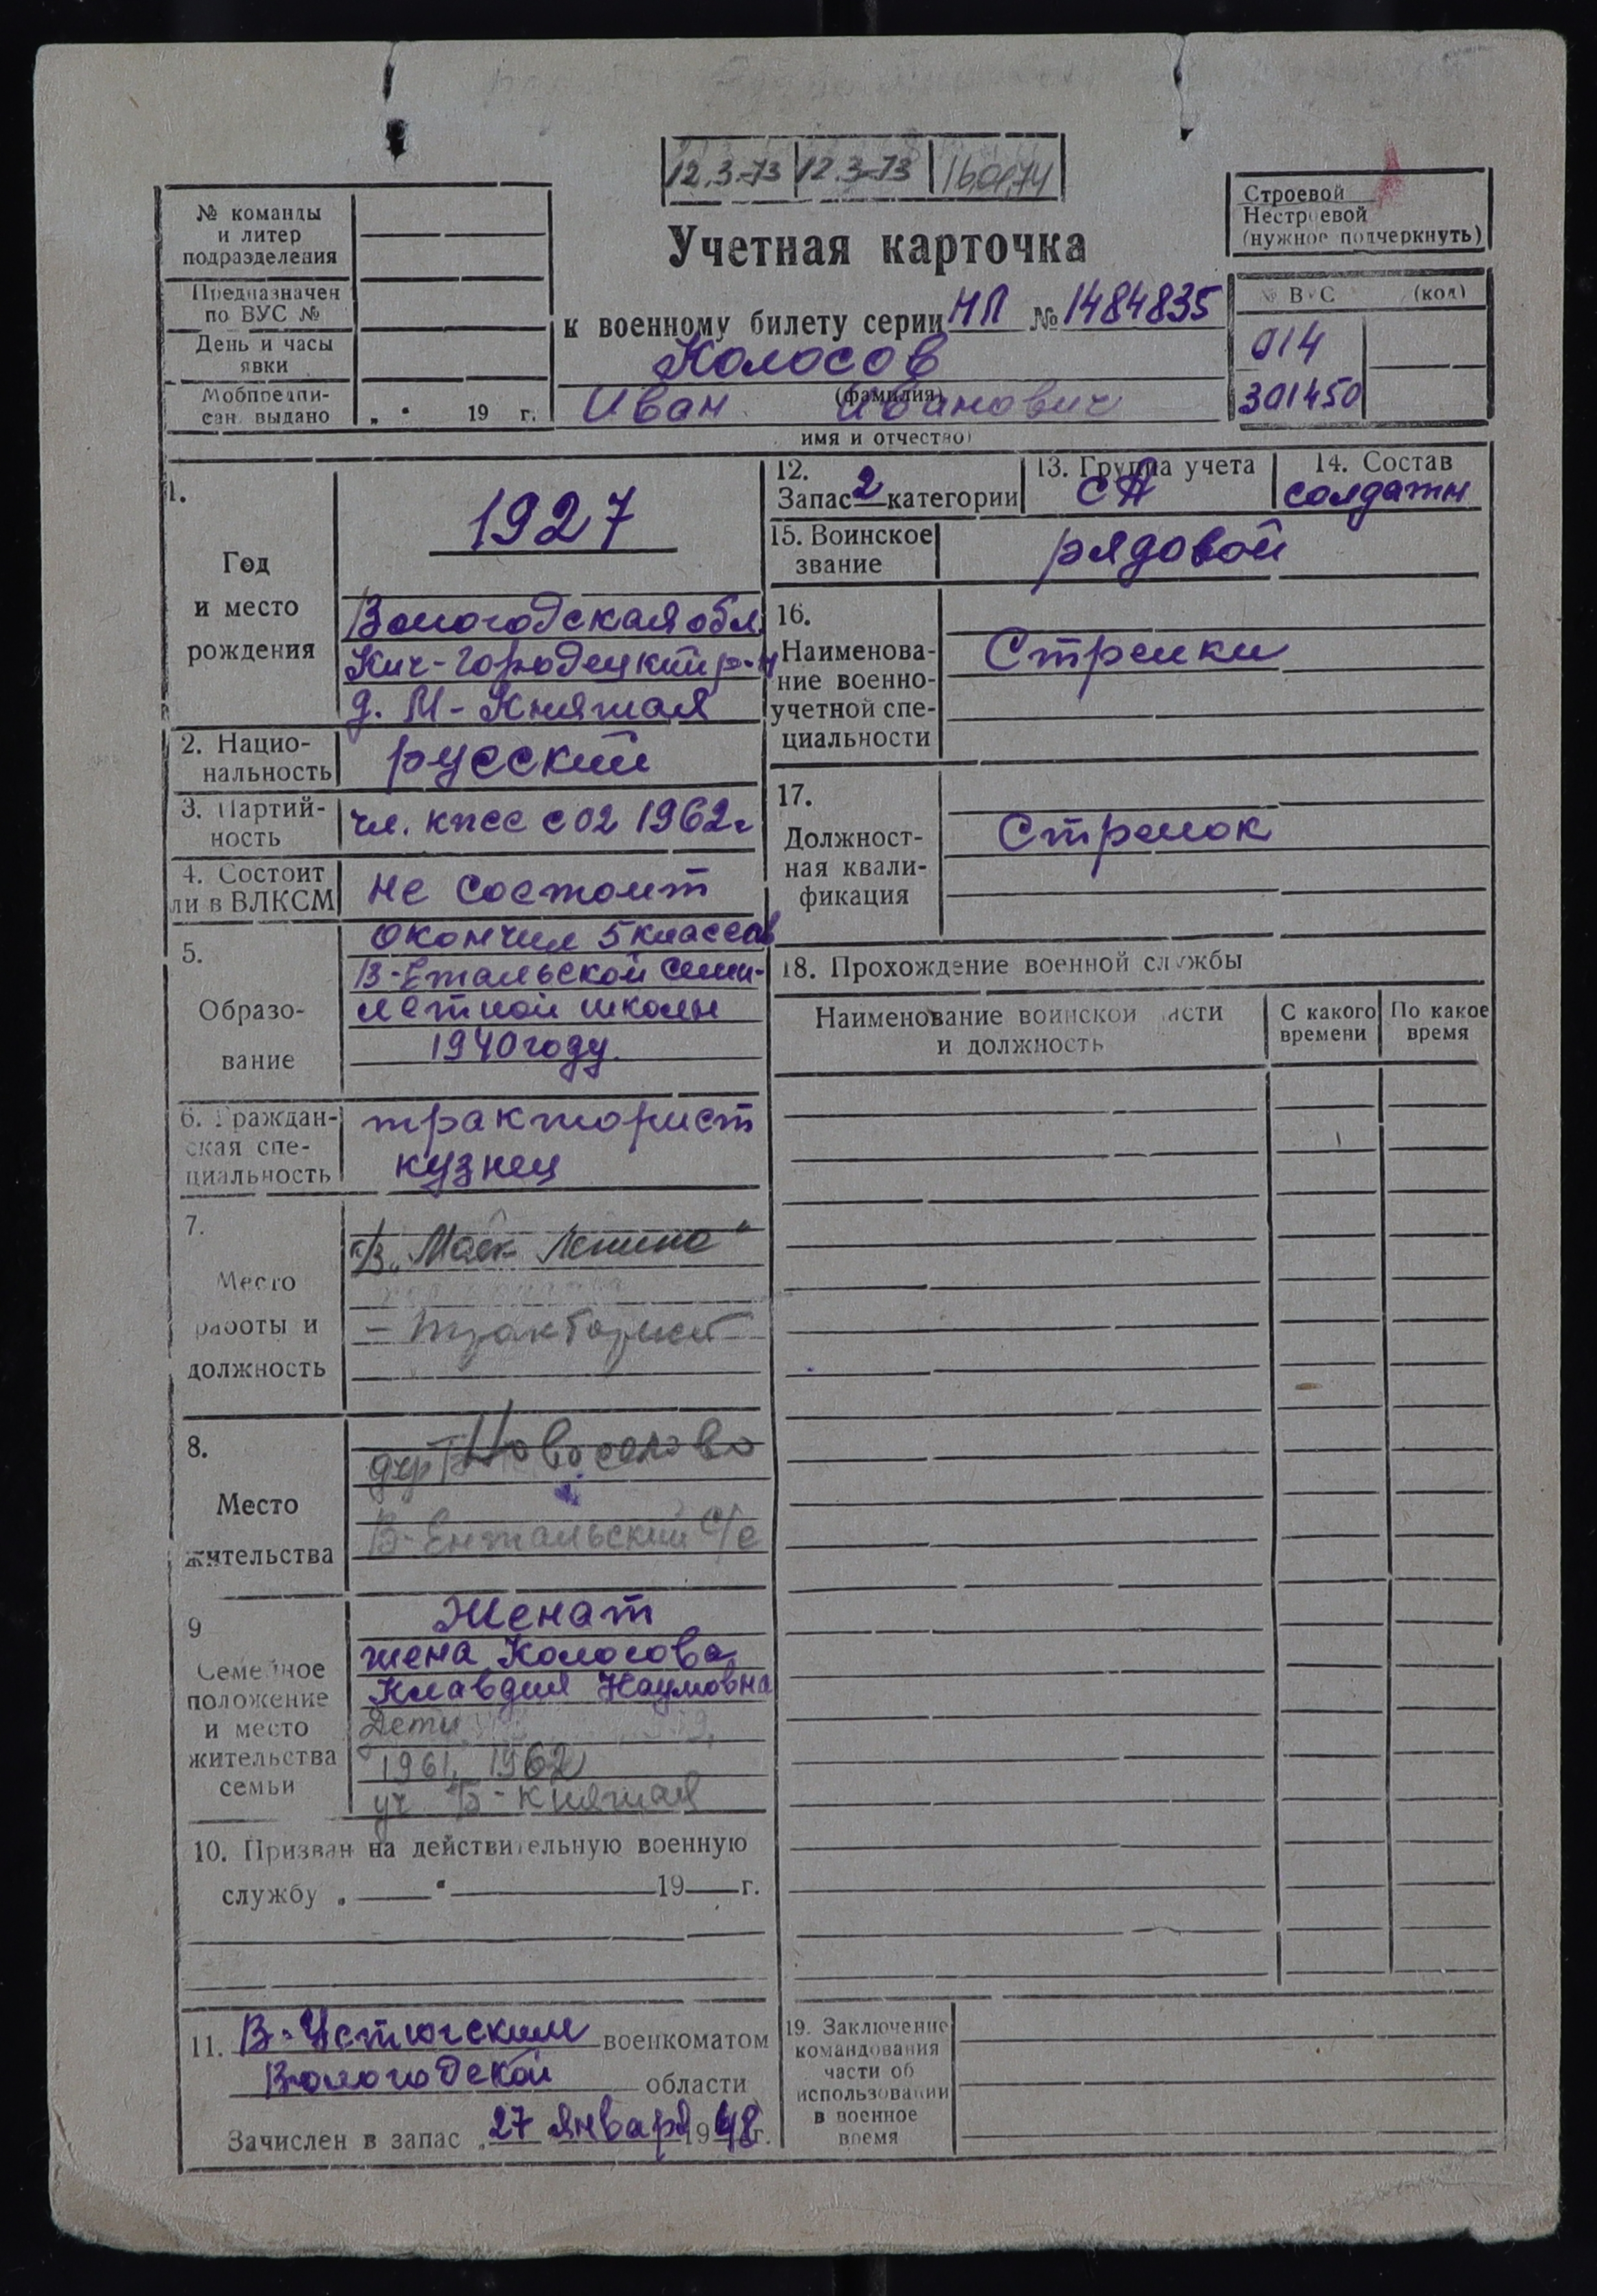 12.3-73 12.3-73 16.01.74
Строевой
Нестроевой
(нужное подчеркнуть)
№ команды
и литер
подразделения
Предназначен
по ВУС №
День и часы
явки
Мобпредпи-
сан. выдано „ “ 19 г.
Учетная карточка
к военному билету серии НЛ № 1484835
Колосов
(фамилия)
Иван Иванович
имя и отчество)
№ ВУС (код)
014
301450
1.
Год
и место
рождения
1927
Вологодская обл.
Кич-Городецкий р-н
д. М-Княжая
2. Нацио-
нальность
русский
3. Партий-
ность
чл. кпсс с 02 1962г
4. Состоит
ли в ВЛКСМ
не состоит
5.
Образо-
вание
окончил 5 классов
В-Ентальской семи-
летной школы
1940 году.
6. Граждан-
ская спе-
циальность
тракторист
кузнец
7.
Место
работы и
должность
к/з „Маяк Ленина“
- тракторист
8.
Место
жительства
дер Новоселово
В-Ентальский с/с
9
Семейное
положение
и место
жительства
семьи
Женат
жена Колосова
Клавдия Наумовна
Дети
1961, 1962
уч Б-Княжая
10. Призван на действительную военную
службу „ “ 19 г.
11. В-Устюгским военкоматом
Вологодской области
Зачислен в запас „27 января 1948 г.
12.
Запас 2 категории
13. Группа учета
СА
14. Состав
солдаты
15. Воинское
звание
рядовой
16.
Наименова-
ние военно-
учетной спе-
циальности
Стрелки
17.
Должност-
ная квали-
фикация
Стрелок
18. Прохождение военной службы
Наименование воинской части
и должность
С какого
времени
По какое
время
19. Заключение
командования
части об
использовании
в военное
время